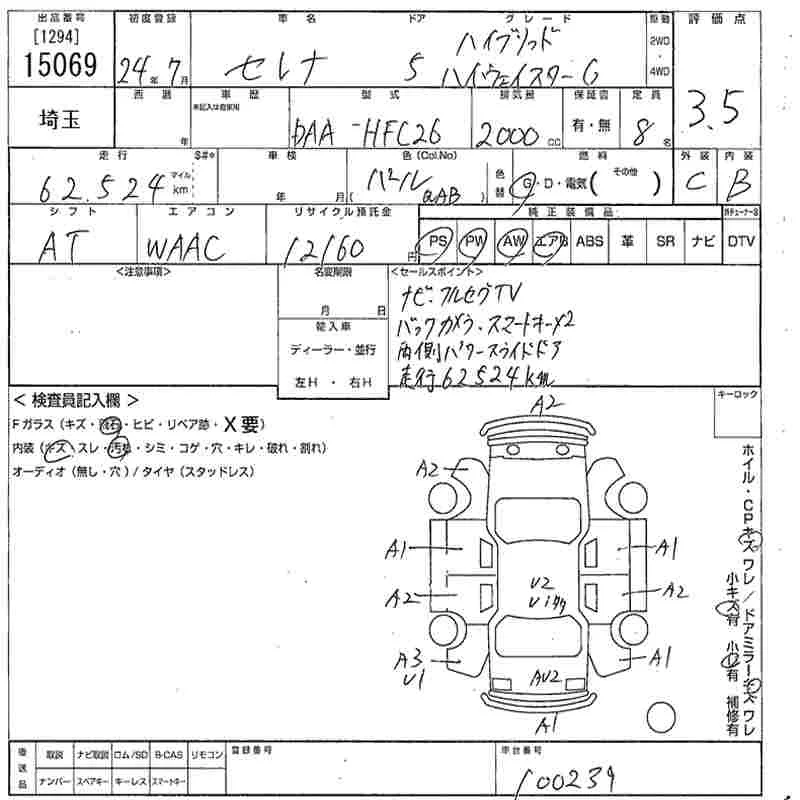 出品番号 初度登録 車名 ドア グレード 駆動 評価点
[1294]
15069 24年7月 セレナ 5 ハイブリッド
ハイウェイスターG 2WD・4WD
3.5
西暦 車歴 型式 排気量 保証書 定員
未記入は自家用
埼玉 年 DAA-HFC26 2000cc 有・無 8名
走行 S#* 車検 色(Col.No) 燃料 外装 内装
62.524 マイル km 年 月 パール (QAB) 色替 G・D・電気( その他 ) C B
シフト エアコン リサイクル預託金 純正装備品
AT WAAC 12160円 PS PW AW エアB ABS 革 SR ナビ DTV
<注意事項> 名変期限 <セールスポイント>
月 日
輸入車
ディーラー・並行
左H・右H
ナビ・フルセグTV
バックカメラ・スマートキー×2
両側パワースライドドア
走行62524km
<検査員記入欄> キーロック
Fガラス(キズ・飛石・ヒビ・リペア跡・X要)
内装(キズ・スレ・汚れ・シミ・コゲ・穴・キレ・破れ・割れ)
オーディオ(無し・穴)/タイヤ(スタッドレス)
A2
A2 A2
A1 A1
A2 A2
U2
A3 A1
U1
AU2
A1
ホイル・CPキズワレ/ドアミラーキズワレ
小キズ有 小凹有 補修有
後送品 取説 ナビ取説 ロム/SD B-CAS リモコン 登録番号 車台番号
ナンバー スペアキー キーレス スマートキー 100239